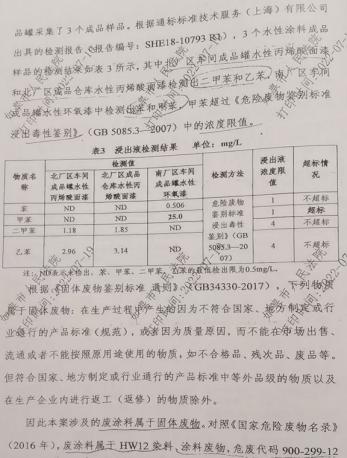 品罐采集了3个成品样品。根据通标标准技术服务（上海）有限公司
出具的检测报告（报告编号：SHE18-10793 R1），3个水性涂料成品
样品的检测结果如表3所示，其中北厂区车间成品罐水性丙烯酸面漆
和北厂区成品仓库水性丙烯酸面漆检测出二甲苯和乙苯，南厂区车间
成品罐水性环氧漆中检测出苯和甲苯，甲苯超过《危险废物鉴别标准
浸出毒性鉴别》（GB 5085.3—2007）中的浓度限值。
表3 浸出液检测结果 单位：mg/L
物质名称 检测值 检测方法 浸出液浓度限值 超标情况
北厂区车间成品罐水性丙烯酸面漆 北厂区成品仓库水性丙烯酸面漆 南厂区车间成品罐水性环氧漆
苯 ND ND 0.506 危险废物鉴别标准浸出毒性鉴别》（GB 5085.3—2007） 1 不超标
甲苯 ND ND 25.0 1 超标
二甲苯 1.18 1.85 ND 4 不超标
乙苯 2.96 3.14 ND 4 不超标
注：ND表示未检出，苯、甲苯、二甲苯、乙苯的最低检出限为0.5mg/L。
根据《固体废物鉴别标准 通则》（GB34330-2017），下列物质
属于固体废物：在生产过程中产生的因为不符合国家、地方制定或行
业通行的产品标准（规范），或者因为质量原因，而不能在市场出售、
流通或者不能按照原用途使用的物质，如不合格品、残次品、废品等。
但符合国家、地方制定或行业通行的产品标准中等外品级的物质以及
在生产企业内进行返工（返修）的物质除外。
因此本案涉及的废涂料属于固体废物。对照《国家危险废物名录》
（2016年），废涂料属于HW12染料、涂料废物，危废代码 900-299-12